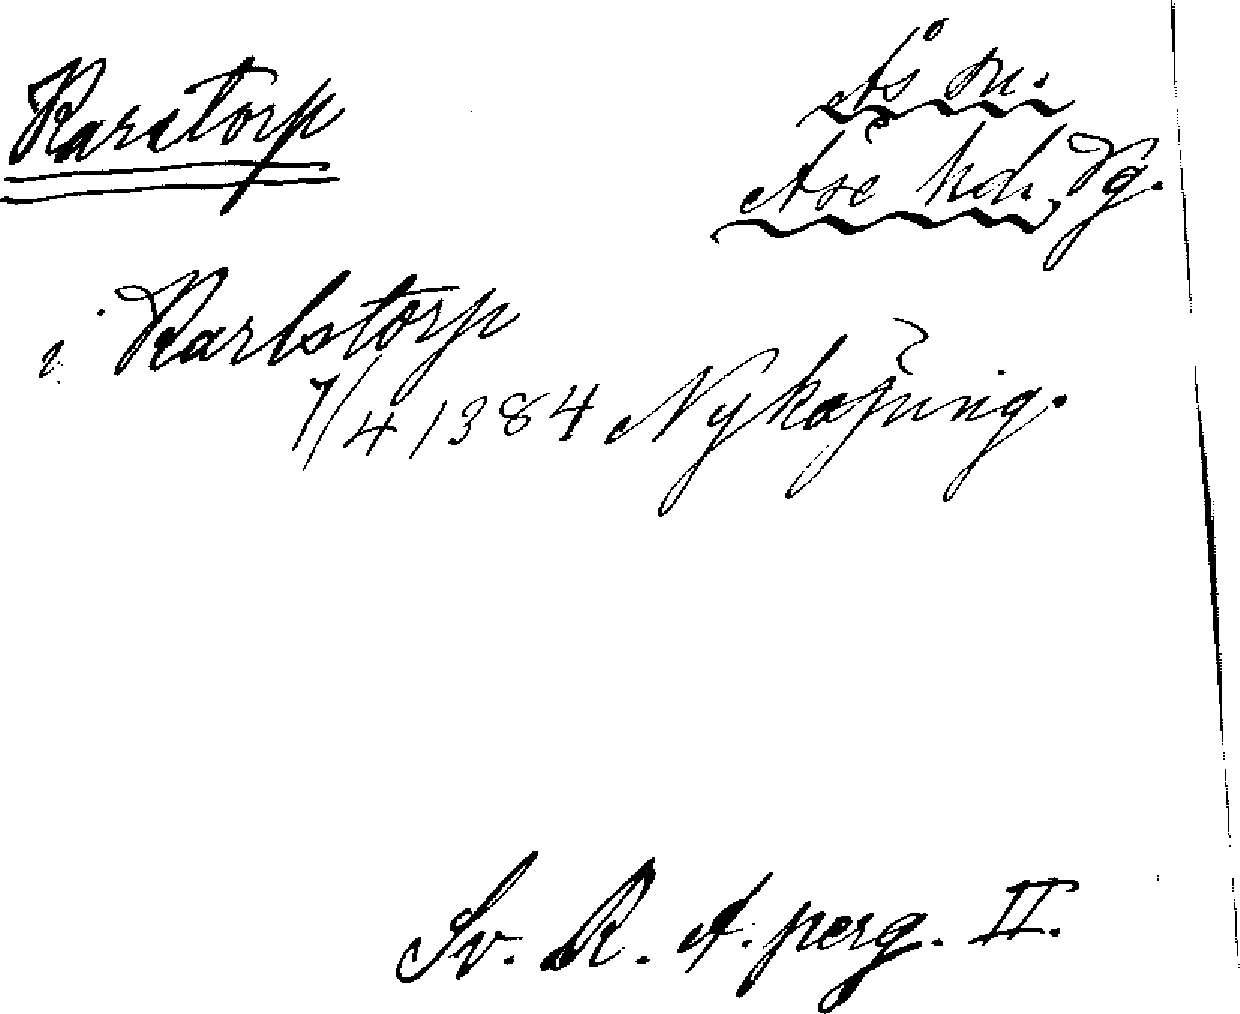 Karstorp
Ås sn.
Åse hd, Vg.
i Karlstorp
7/4 1384 Nyköping.
Sv. R. A. perg. II.